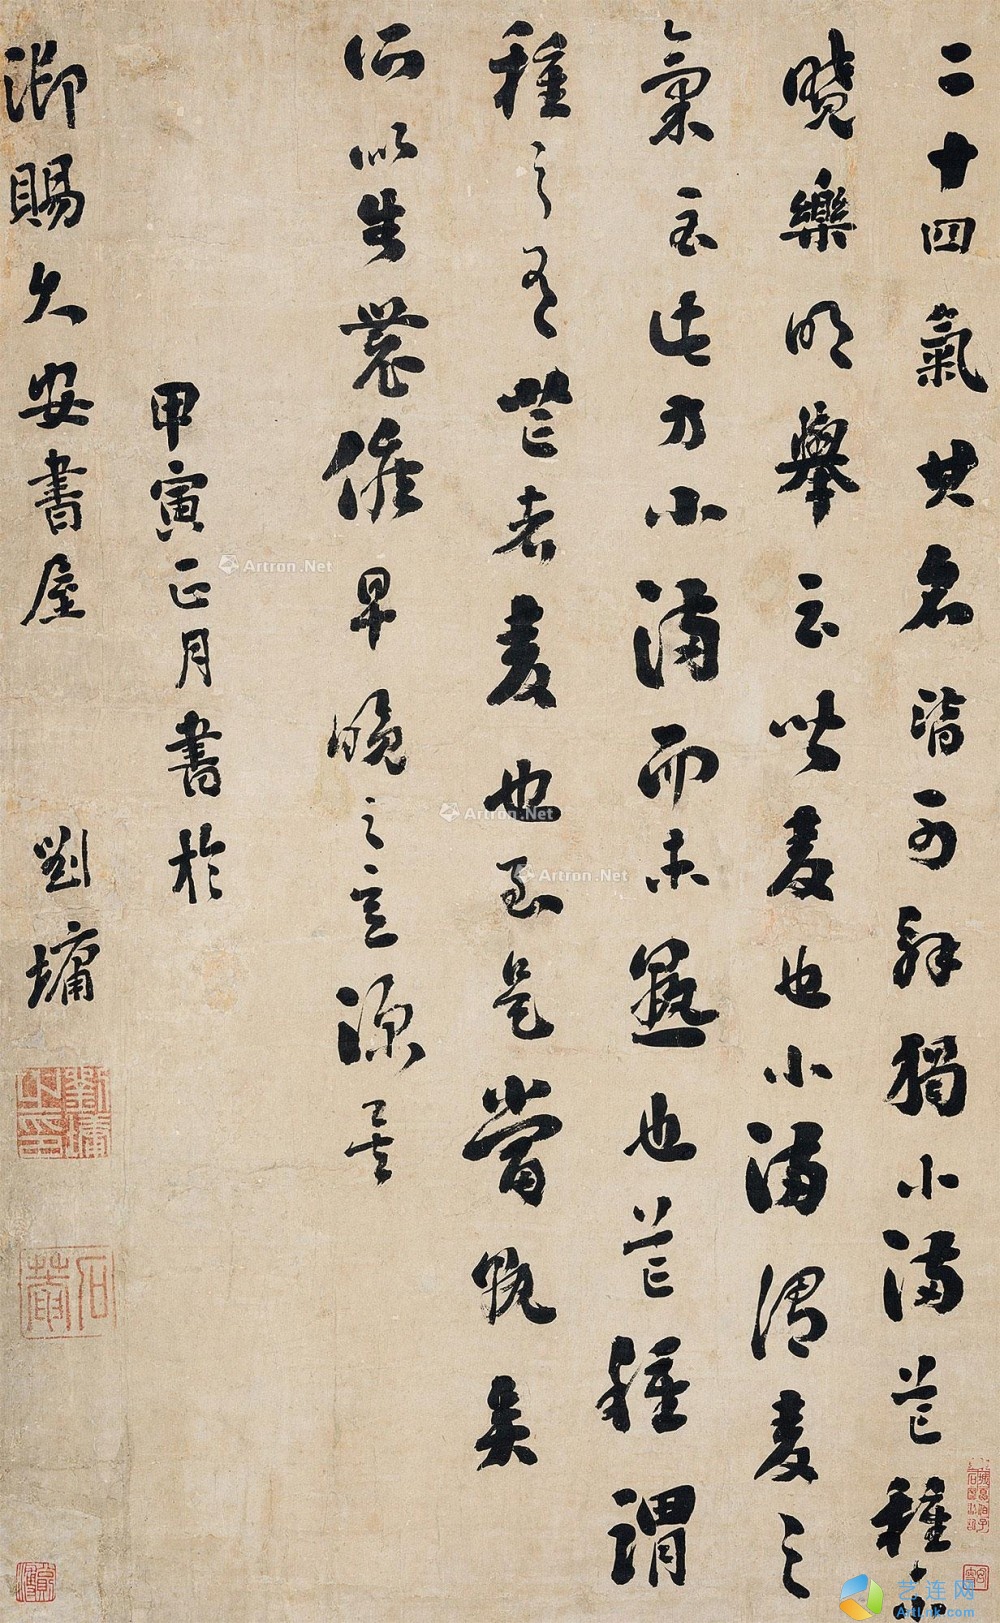 二十四氣其名皆可解獨小滿芒種不
曉樂明舉云皆麥也小滿謂麥之
氣至此方小滿而未熟也芒種謂
種之有芒者麥也至是當熟矣
所以告農候早晚之意深矣
甲寅正月書於
御賜久安書屋 劉墉
劉墉之印
石菴
Artron.Net
Artron.Net
Artron.Net
艺连网
ArtLnk.com